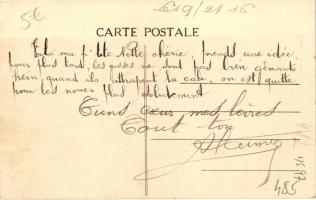 5€
Le 9/21 16
CARTE POSTALE
Voila ma p'tite Nette chérie, prends une idée
pour plus tard, les gosses ne sont pas bien gênants
hein, quand ils attrapent la cale, on est quitte
pour les nouer plus solidement
Tiens cœur, mes lèvres
Tout ton
485